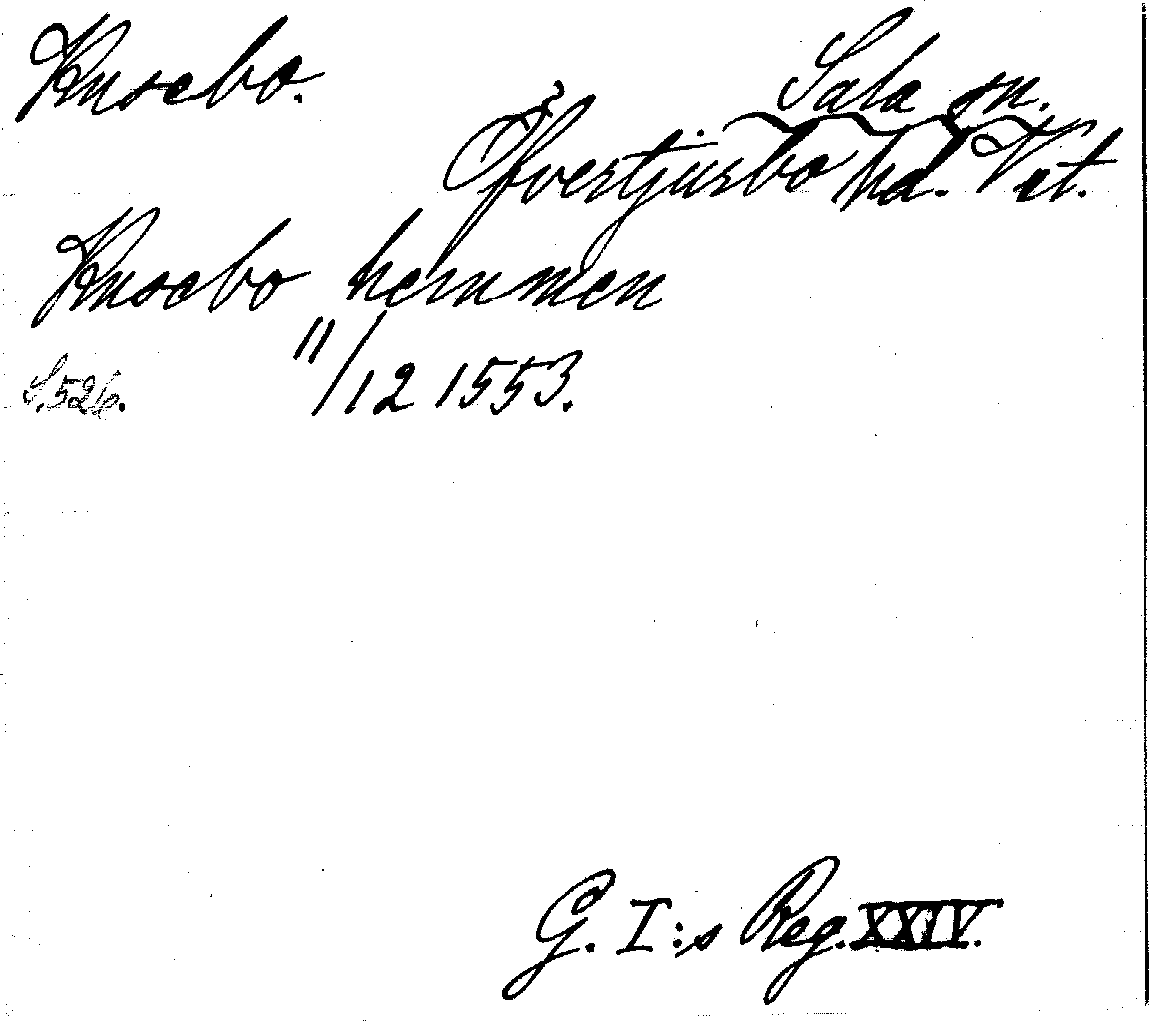 Kusebo.
Sala sn.
Öfvertjurbo hd. Vst.
Kusebo hemmen
S. 526. 11/12 1553.
G. I:s Reg. XXIV.